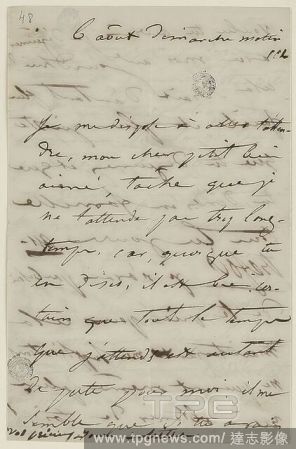 48
6 août Dimanche matin
Je me dispose à aller t'atten-
dre, mon cher petit bien
aimé, tâche que je
ne t'attende pas trop long-
temps, car, quoique tu
en dises, il est bien cer-
tain que tout le temps
que j'attends est autant
de perdu pour moi il me
semble que si tu
TPG
www.tpgnews.com / 達志影像